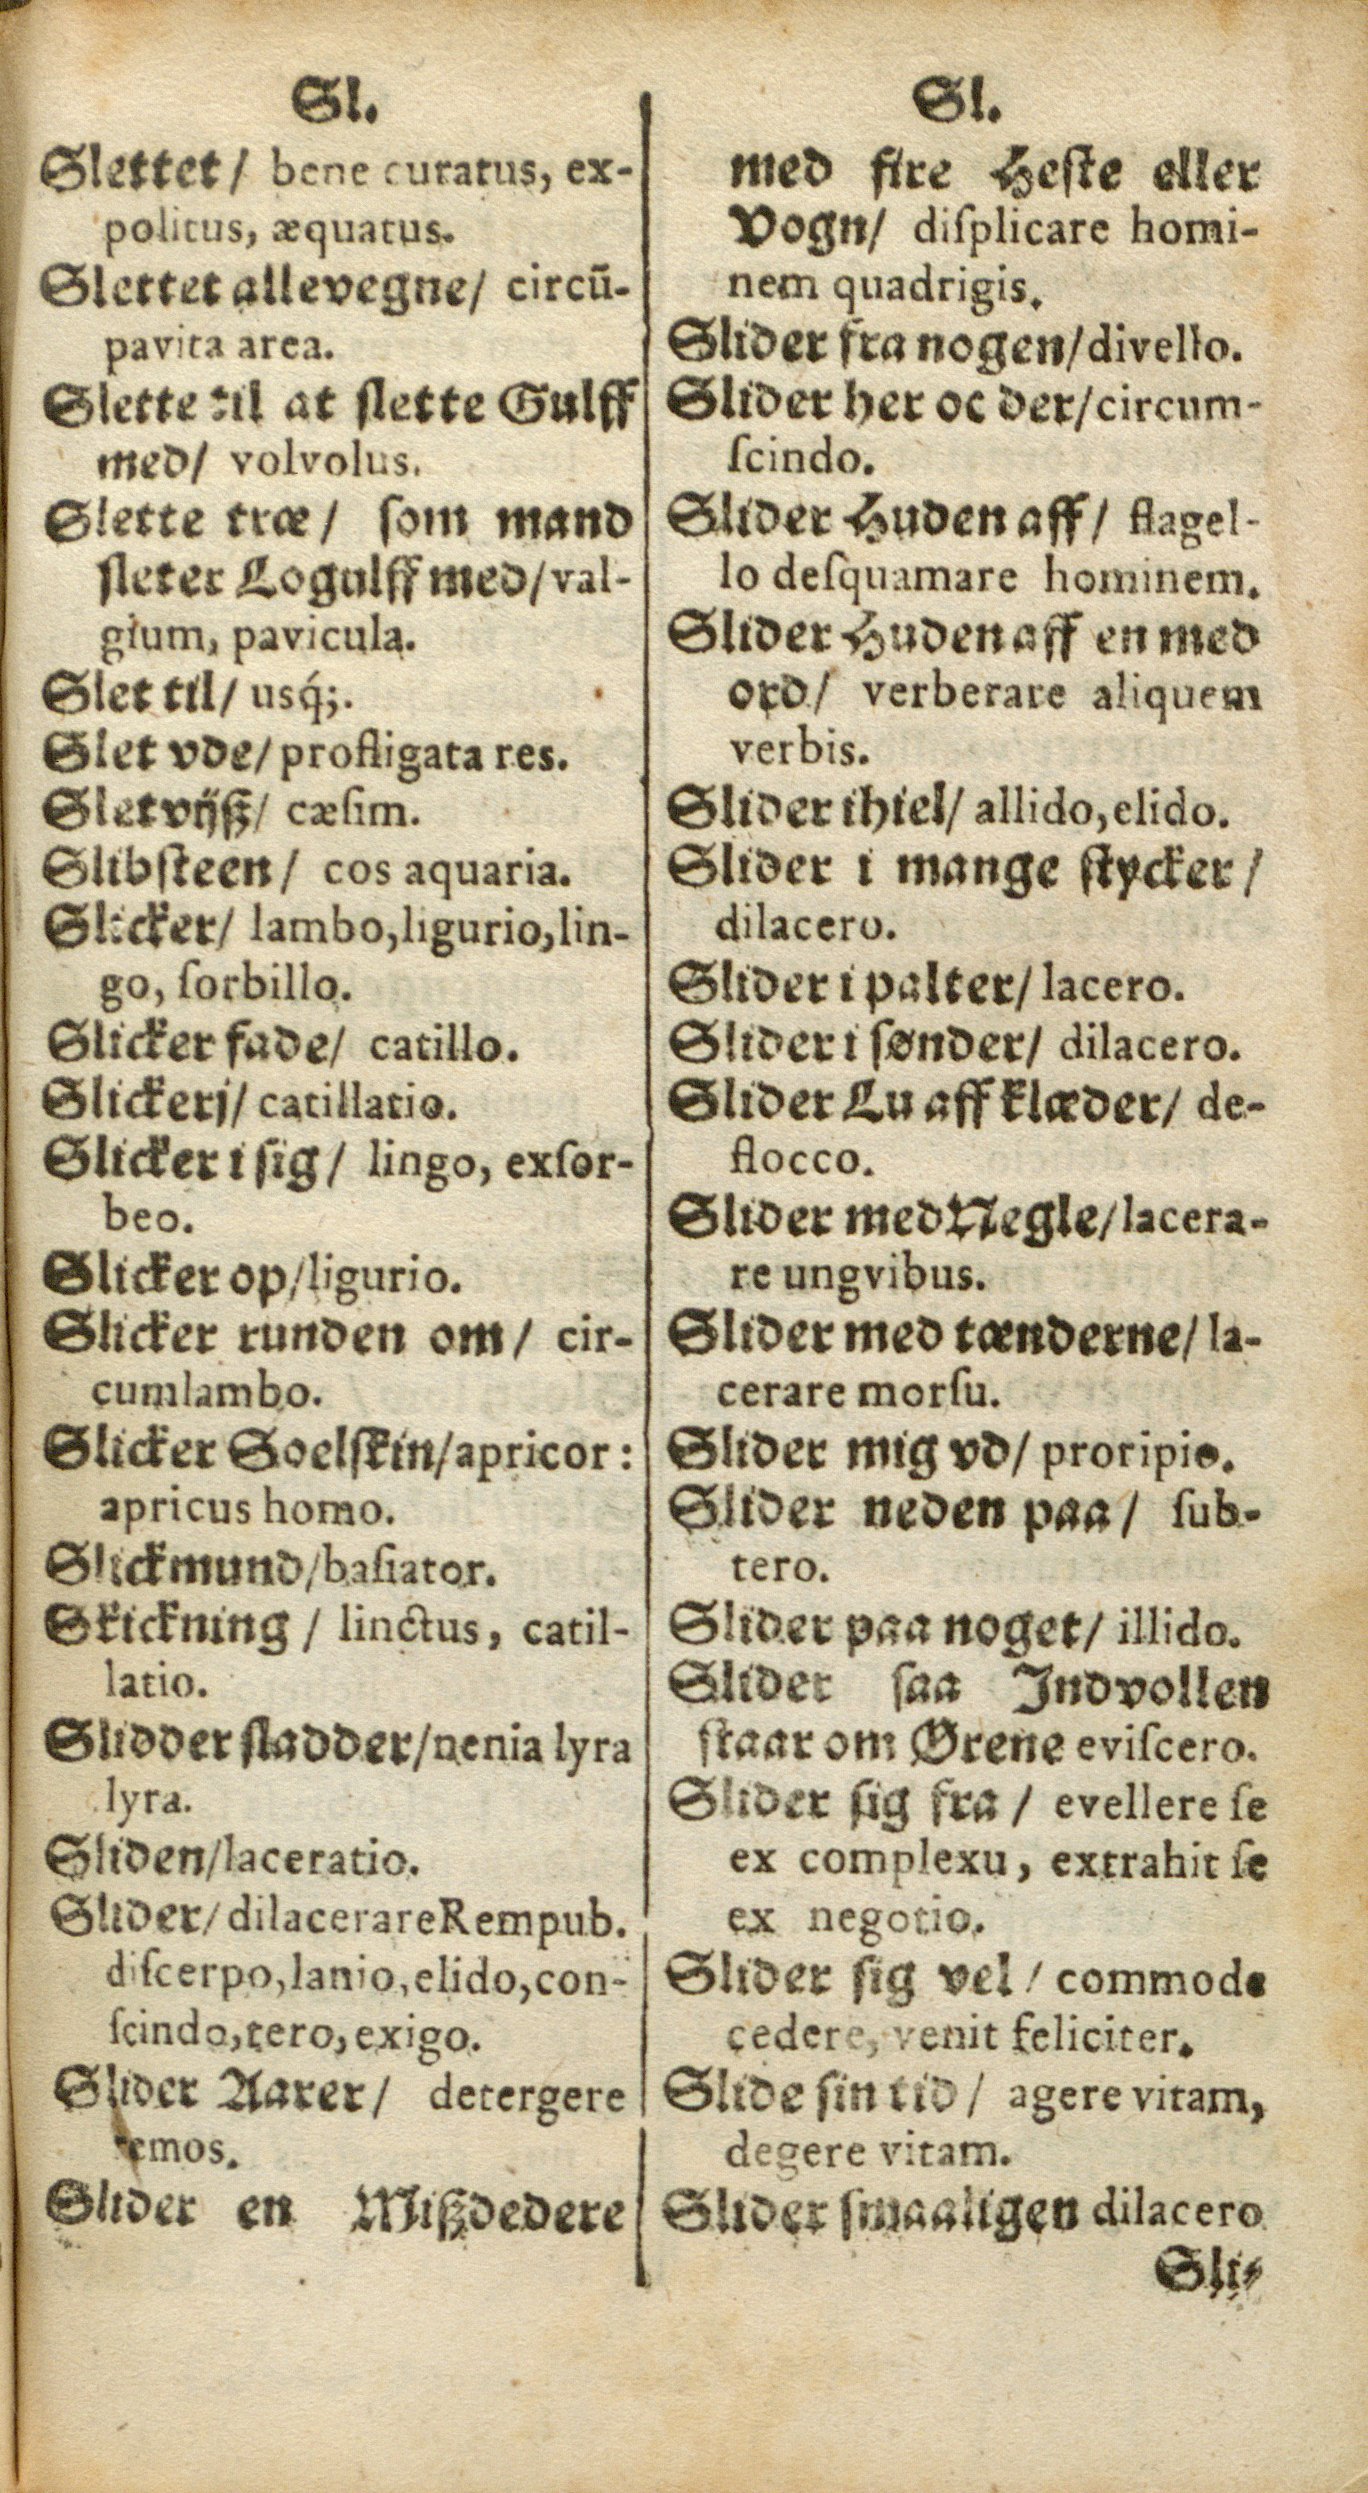 Sl.
Slettet/ bene curatus, ex-
politus, æquatus.
Slettet allevegne/ circū-
pavita area.
Slette til at ſlette Gulff
med/ volvolus.
Slette træ/ ſom mand
ſleter Logulff med/ val-
gium, pavicula.
Slet til/ usq́;.
Slet vde/ profligata res.
Slet vijß/ cæſim.
Slibſteen/ cos aquaria.
Slicker/ lambo, ligurio, lin-
go, ſorbillo.
Slicker fade/ catillo.
Slickerj/ catillatio.
Slicker i ſig/ lingo, exſor-
beo.
Slicker op/ ligurio.
Slicker runden om/ cir-
cumlambo.
Slicker Soelſkin/ apricor:
apricus homo.
Slickmund/ baſiator.
Skickning/ linctus, catil-
latio.
Slidder ſladder/ nenia lyra
lyra.
Sliden/ laceratio.
Slider/ dilacerare Rempub.
diſcerpo, lanio, elido, con-
ſcindo, tero, exigo.
Slider Aarer/ detergere
remos.
Slider en Mißdedere
Sl.
med fire Heſte eller
Vogn/ diſplicare homi-
nem quadrigis.
Slider fra nogen/ divello.
Slider her oc der/ circum-
ſcindo.
Slider Huden aff/ flagel-
lo deſquamare hominem.
Slider Huden aff en med
ord/ verberare aliquem
verbis.
Slider ihiel/ allido, elido.
Slider i mange ſtycker/
dilacero.
Slider i palter/ lacero.
Slider i ſønder/ dilacero.
Slider Lu aff klæder/ de-
flocco.
Slider med Negle/ lacera-
re ungvibus.
Slider med tænderne/ la-
cerare morſu.
Slider mig vd/ proripio.
Slider neden paa/ ſub-
tero.
Slider paa noget/ illido.
Slider ſaa Indvollen
ſtaar om Ørene eviſcero.
Slider ſig fra/ evellere ſe
ex complexu, extrahit ſe
ex negotio.
Slider ſig vel/ commode
cedere, venit feliciter.
Slide ſin tid/ agere vitam,
degere vitam.
Slider ſmaaligen dilacero
Sli-